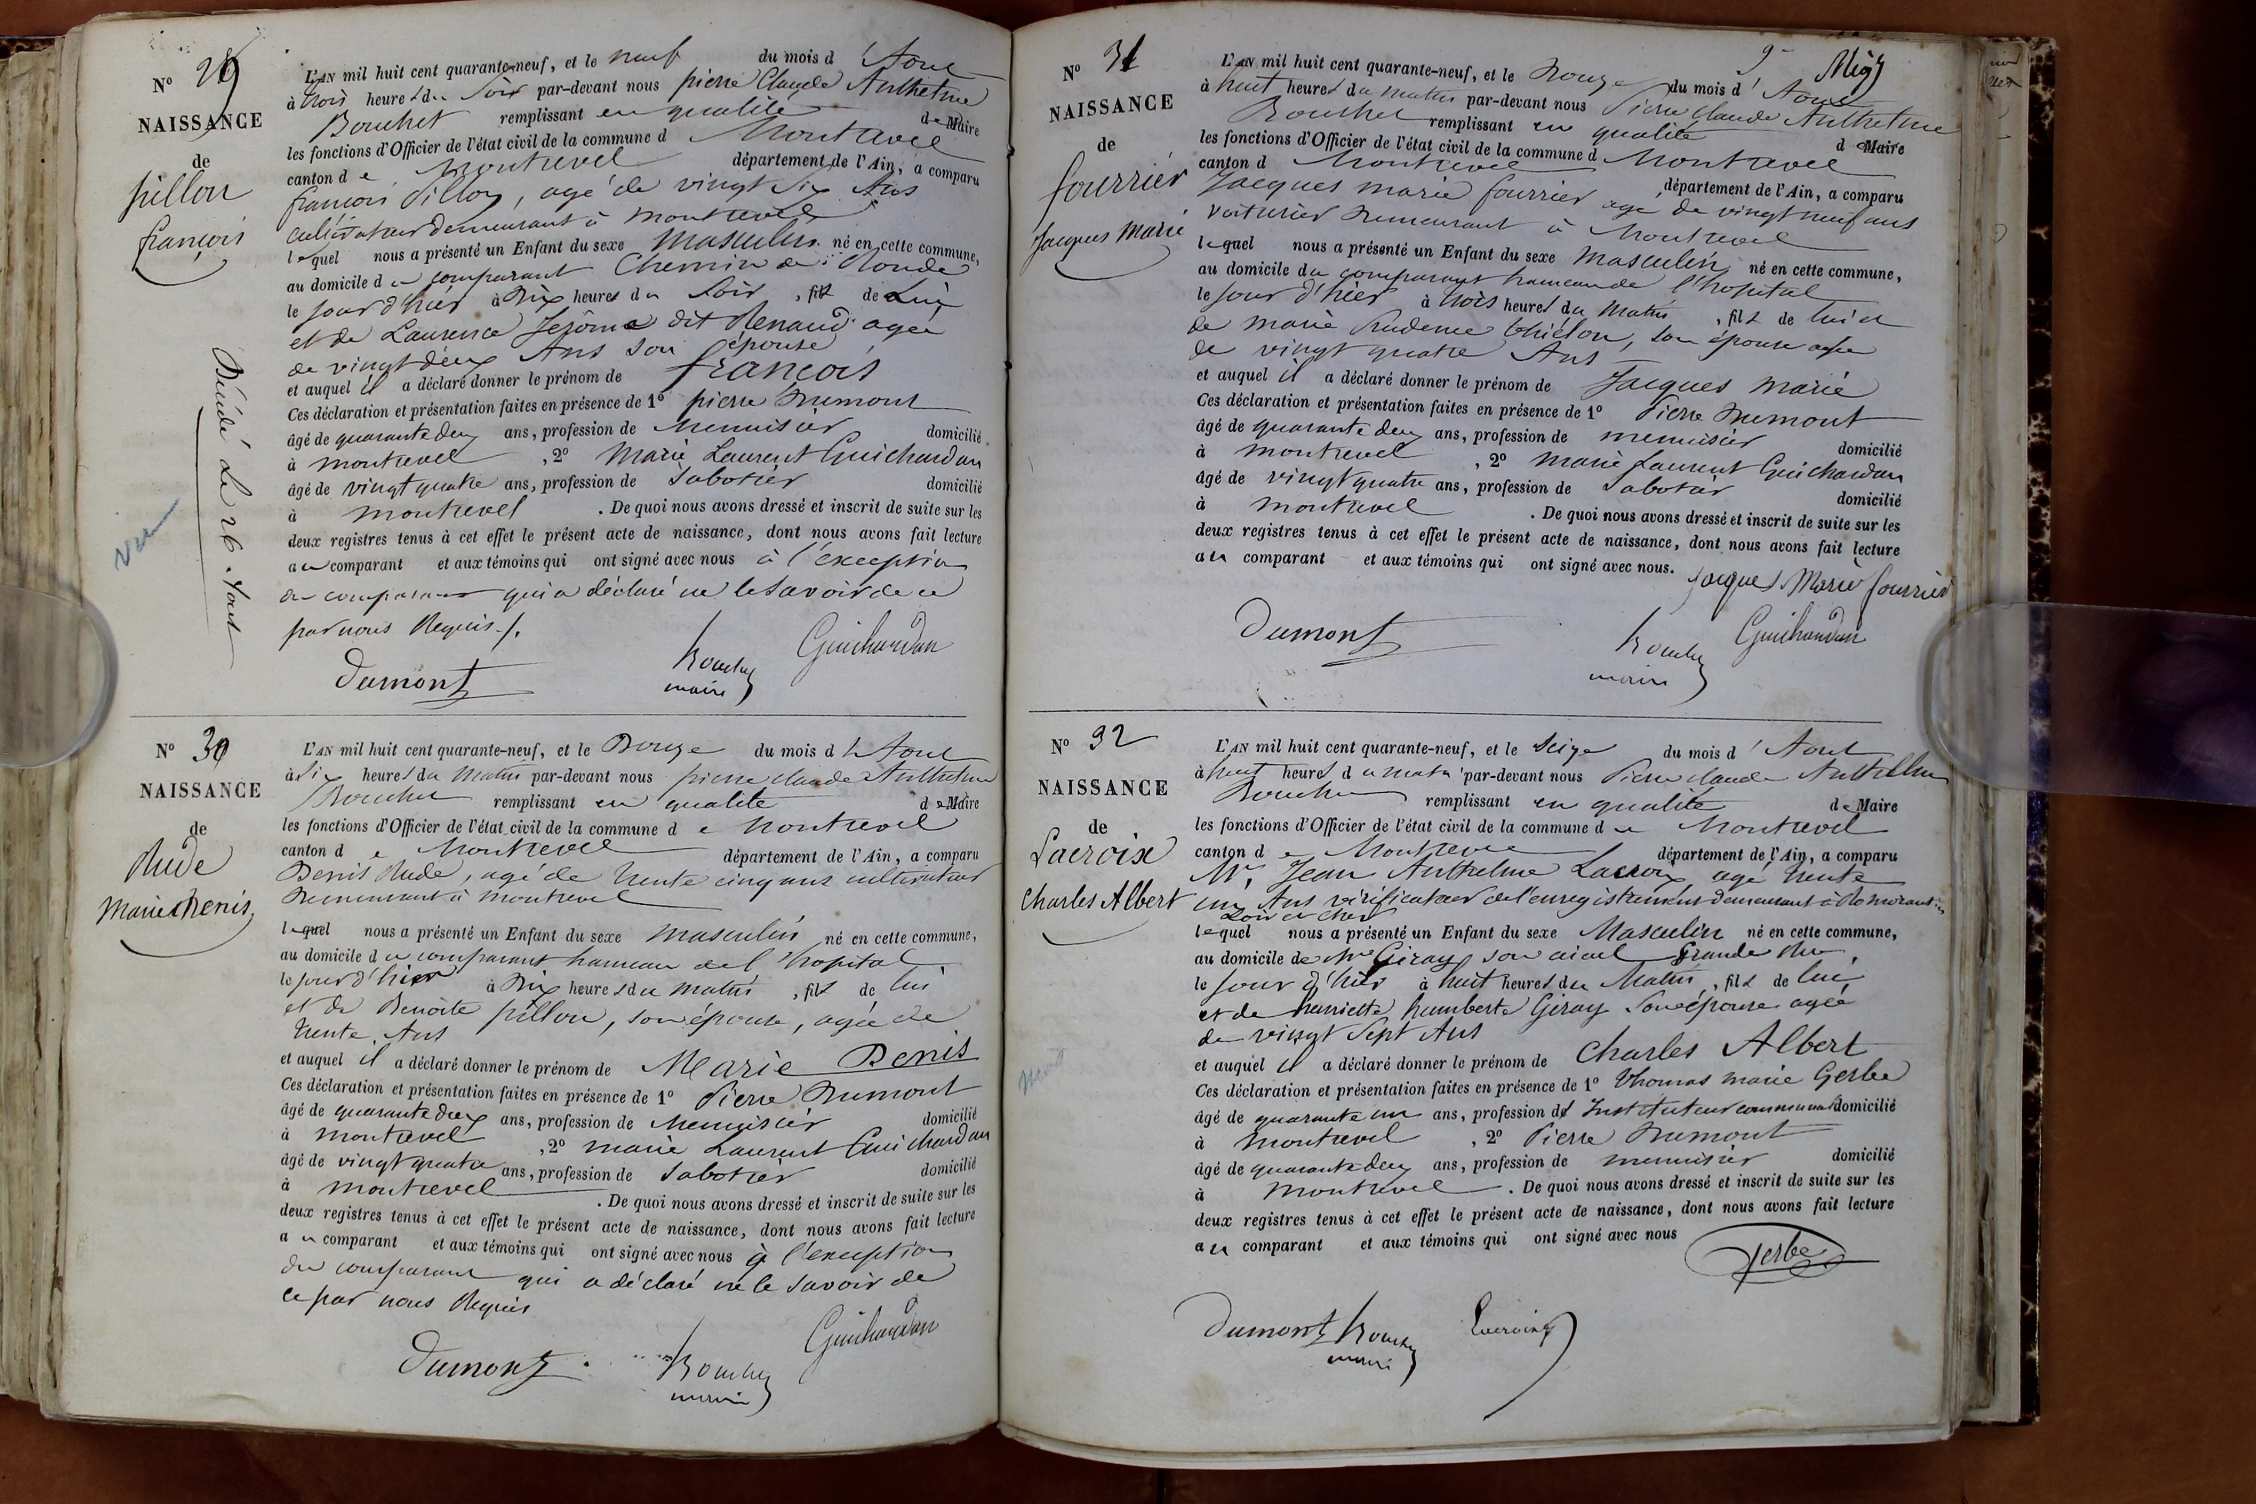 N° 29
NAISSANCE
de
pillon
françois
Décédé Le 26. Aout
vu
L'AN mil huit cent quarante-neuf, et le neuf du mois d'Aout
à trois heures du Soir par-devant nous pierre Claude Anthelme
Bouchet remplissant en qualité de Maire
les fonctions d'Officier de l'état civil de la commune d Montrevel
canton de Montrevel département de l'Ain, a comparu
françois Pillon, agé de vingt Six Ans
cultivateur demeurant à Montrevel
lequel nous a présenté un Enfant du sexe Masculin né en cette commune,
au domicile du comparant Chemin de Ronde
le jour d'hier à Dix heures du Soir, fils de Lui
et de Laurence Jérôme dit Renaud agée
de vingt deux Ans son épouse
et auquel il a déclaré donner le prénom de françois
Ces déclaration et présentation faites en présence de 1° pierre Dumont
âgé de quarante deux ans, profession de Menuisier domicilié
à montrevel, 2° Marie Laurent Guichardan
âgé de vingt quatre ans, profession de Sabotier domicilié
à montrevel. De quoi nous avons dressé et inscrit de suite sur les
deux registres tenus à cet effet le présent acte de naissance, dont nous avons fait lecture
au comparant et aux témoins qui ont signé avec nous à l'exception
du comparant qui a déclaré ne le savoir de ce
par nous Requis./.
Dumont Bouchet Guichardan
maire
N° 30
NAISSANCE
de
Rude
Marie Denis
L'AN mil huit cent quarante-neuf, et le Douze du mois d'Aout
à Six heures du Matin par-devant nous pierre claude Anthelme
Bouchet remplissant en qualité de Maire
les fonctions d'Officier de l'état civil de la commune de Montrevel
canton de Montrevel département de l'Ain, a comparu
Denis Rude, agé de trente cinq ans cultivateur
Demeurant à Montrevel
lequel nous a présenté un Enfant du sexe masculin né en cette commune,
au domicile du comparant hameau de l'hopital
le jour d'hier à Dix heures du matin, fils de lui
et de Benoite pillon, son épouse, agée de
trente Ans
et auquel il a déclaré donner le prénom de Marie Denis
Ces déclaration et présentation faites en présence de 1° Pierre Dumont
âgé de quarante deux ans, profession de Menuisier domicilié
à montrevel, 2° marie Laurent Guichardan
âgé de vingt quatre ans, profession de Sabotier domicilié
à montrevel. De quoi nous avons dressé et inscrit de suite sur les
deux registres tenus à cet effet le présent acte de naissance, dont nous avons fait lecture
au comparant et aux témoins qui ont signé avec nous à l'exception
du comparant qui a déclaré ne le savoir de
ce par nous Requis
Dumont Bouchet Guichardan
maire
N° 31
NAISSANCE
de
fourrier
Jacques Marie
L'AN mil huit cent quarante-neuf, et le Douze du mois d'Aout
à huit heures du matin par-devant nous Pierre Claude Anthelme
Bouchet remplissant en qualité de Maire
les fonctions d'Officier de l'état civil de la commune d Montrevel
canton d Montrevel département de l'Ain, a comparu
Jacques marie fourrier agé de vingt neuf ans
voiturier Demeurant à Montrevel
lequel nous a présenté un Enfant du sexe Masculin né en cette commune,
au domicile du comparant hameau de l'hopital
le jour d'hier à trois heures du Matin, fils de lui et
de marie Prudence Chiclon, son épouse agée
de vingt quatre Ans
et auquel il a déclaré donner le prénom de Jacques Marie
Ces déclaration et présentation faites en présence de 1° Pierre Dumont
âgé de quarante deux ans, profession de menuisier domicilié
à montrevel, 2° marie Laurent Guichardan
âgé de vingt quatre ans, profession de Sabotier domicilié
à montrevel. De quoi nous avons dressé et inscrit de suite sur les
deux registres tenus à cet effet le présent acte de naissance, dont nous avons fait lecture
au comparant et aux témoins qui ont signé avec nous. Jacques Marie fourrier
Dumont Bouchet Guichardan
maire
N° 32
NAISSANCE
de
Lacroix
Charles Albert
L'AN mil huit cent quarante-neuf, et le Seize du mois d'Aout
à huit heures du matin par-devant nous Pierre claude Anthelme
Bouchet remplissant en qualité de Maire
les fonctions d'Officier de l'état civil de la commune de Montrevel
canton de Montrevel département de l'Ain, a comparu
Mr. Jean Anthelme Lacroix agé trente
un Ans vérificateur de l'enregistrement demeurant à Romorantin
Loir et cher
lequel nous a présenté un Enfant du sexe Masculin né en cette commune,
au domicile de Mr Giray son aieul Grande Rue
le jour d'hier à huit heures du Matin, fils de lui
et de henriette humberte Giray Son épouse agée
de vingt Sept Ans
et auquel il a déclaré donner le prénom de Charles Albert
Ces déclaration et présentation faites en présence de 1° Thomas marie Gerbe
âgé de quarante un ans, profession d'Instituteur communal domicilié
à Montrevel, 2° Pierre Dumont
âgé de quarante deux ans, profession de menuisier domicilié
à Montrevel. De quoi nous avons dressé et inscrit de suite sur les
deux registres tenus à cet effet le présent acte de naissance, dont nous avons fait lecture
au comparant et aux témoins qui ont signé avec nous
Gerbe
Dumont Bouchet Lacroix
maire